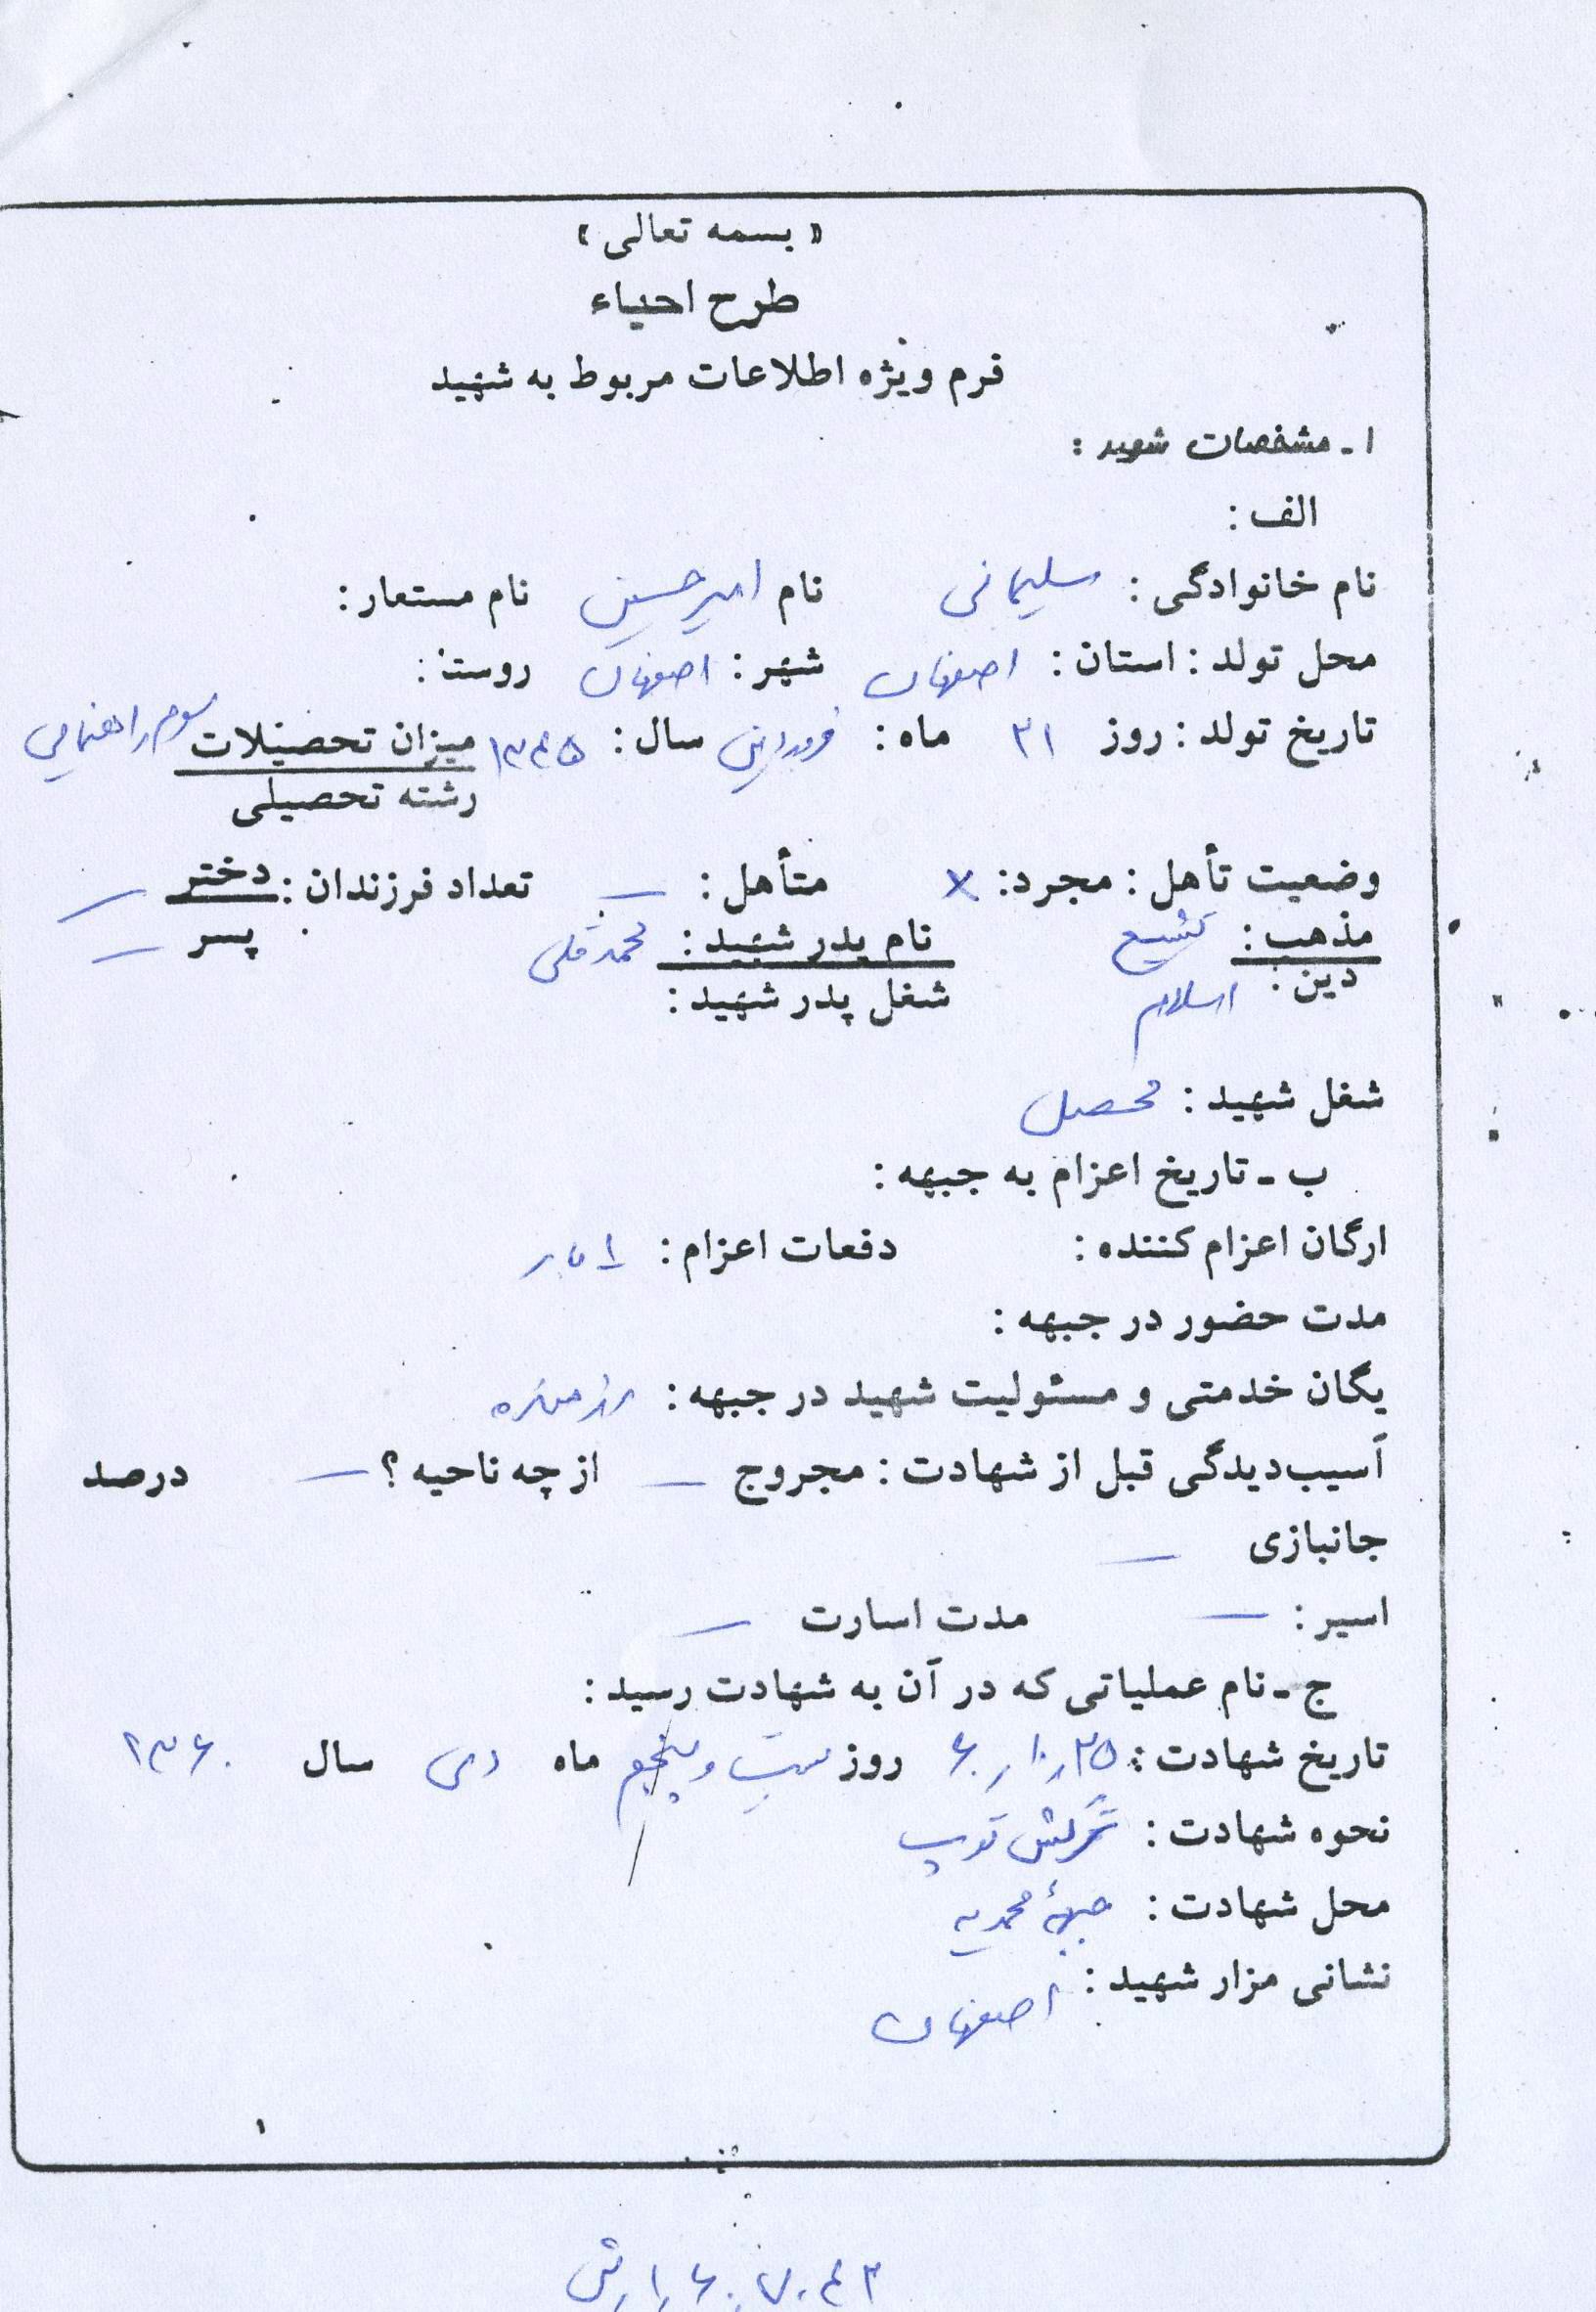 « بسمه تعالی »
طرح احیاء
فرم ویژه اطلاعات مربوط به شهید
۱ـ مشخصات شهید :
الف :
نام خانوادگی : سلیمانی نام امیرحسین نام مستعار :
محل تولد : استان : اصفهان شهر : اصفهان روستا :
تاریخ تولد : روز ۲۱ ماه : فروردین سال : ۱۳۴۵ میزان تحصیلات سوم راهنمایی
رشته تحصیلی
وضعیت تأهل : مجرد : × متأهل : — تعداد فرزندان : دختر —
مذهب : تشیع نام پدر شهید : محمدقلی پسر —
دین : اسلام شغل پدر شهید :
شغل شهید : محصل
ب ـ تاریخ اعزام به جبهه :
ارگان اعزام کننده : دفعات اعزام : ۱ بار
مدت حضور در جبهه :
یگان خدمتی و مسئولیت شهید در جبهه : رزمنده
آسیب‌دیدگی قبل از شهادت : مجروح — از چه ناحیه ؟ — درصد
جانبازی —
اسیر : — مدت اسارت —
ج ـ نام عملیاتی که در آن به شهادت رسید :
تاریخ شهادت : ۲۵ر۱۰ر۶۰ روز بیست و پنجم ماه دی سال ۱۳۶۰
نحوه شهادت : ترکش توپ
محل شهادت : جبههٔ محمدیه
نشانی مزار شهید : اصفهان
۱